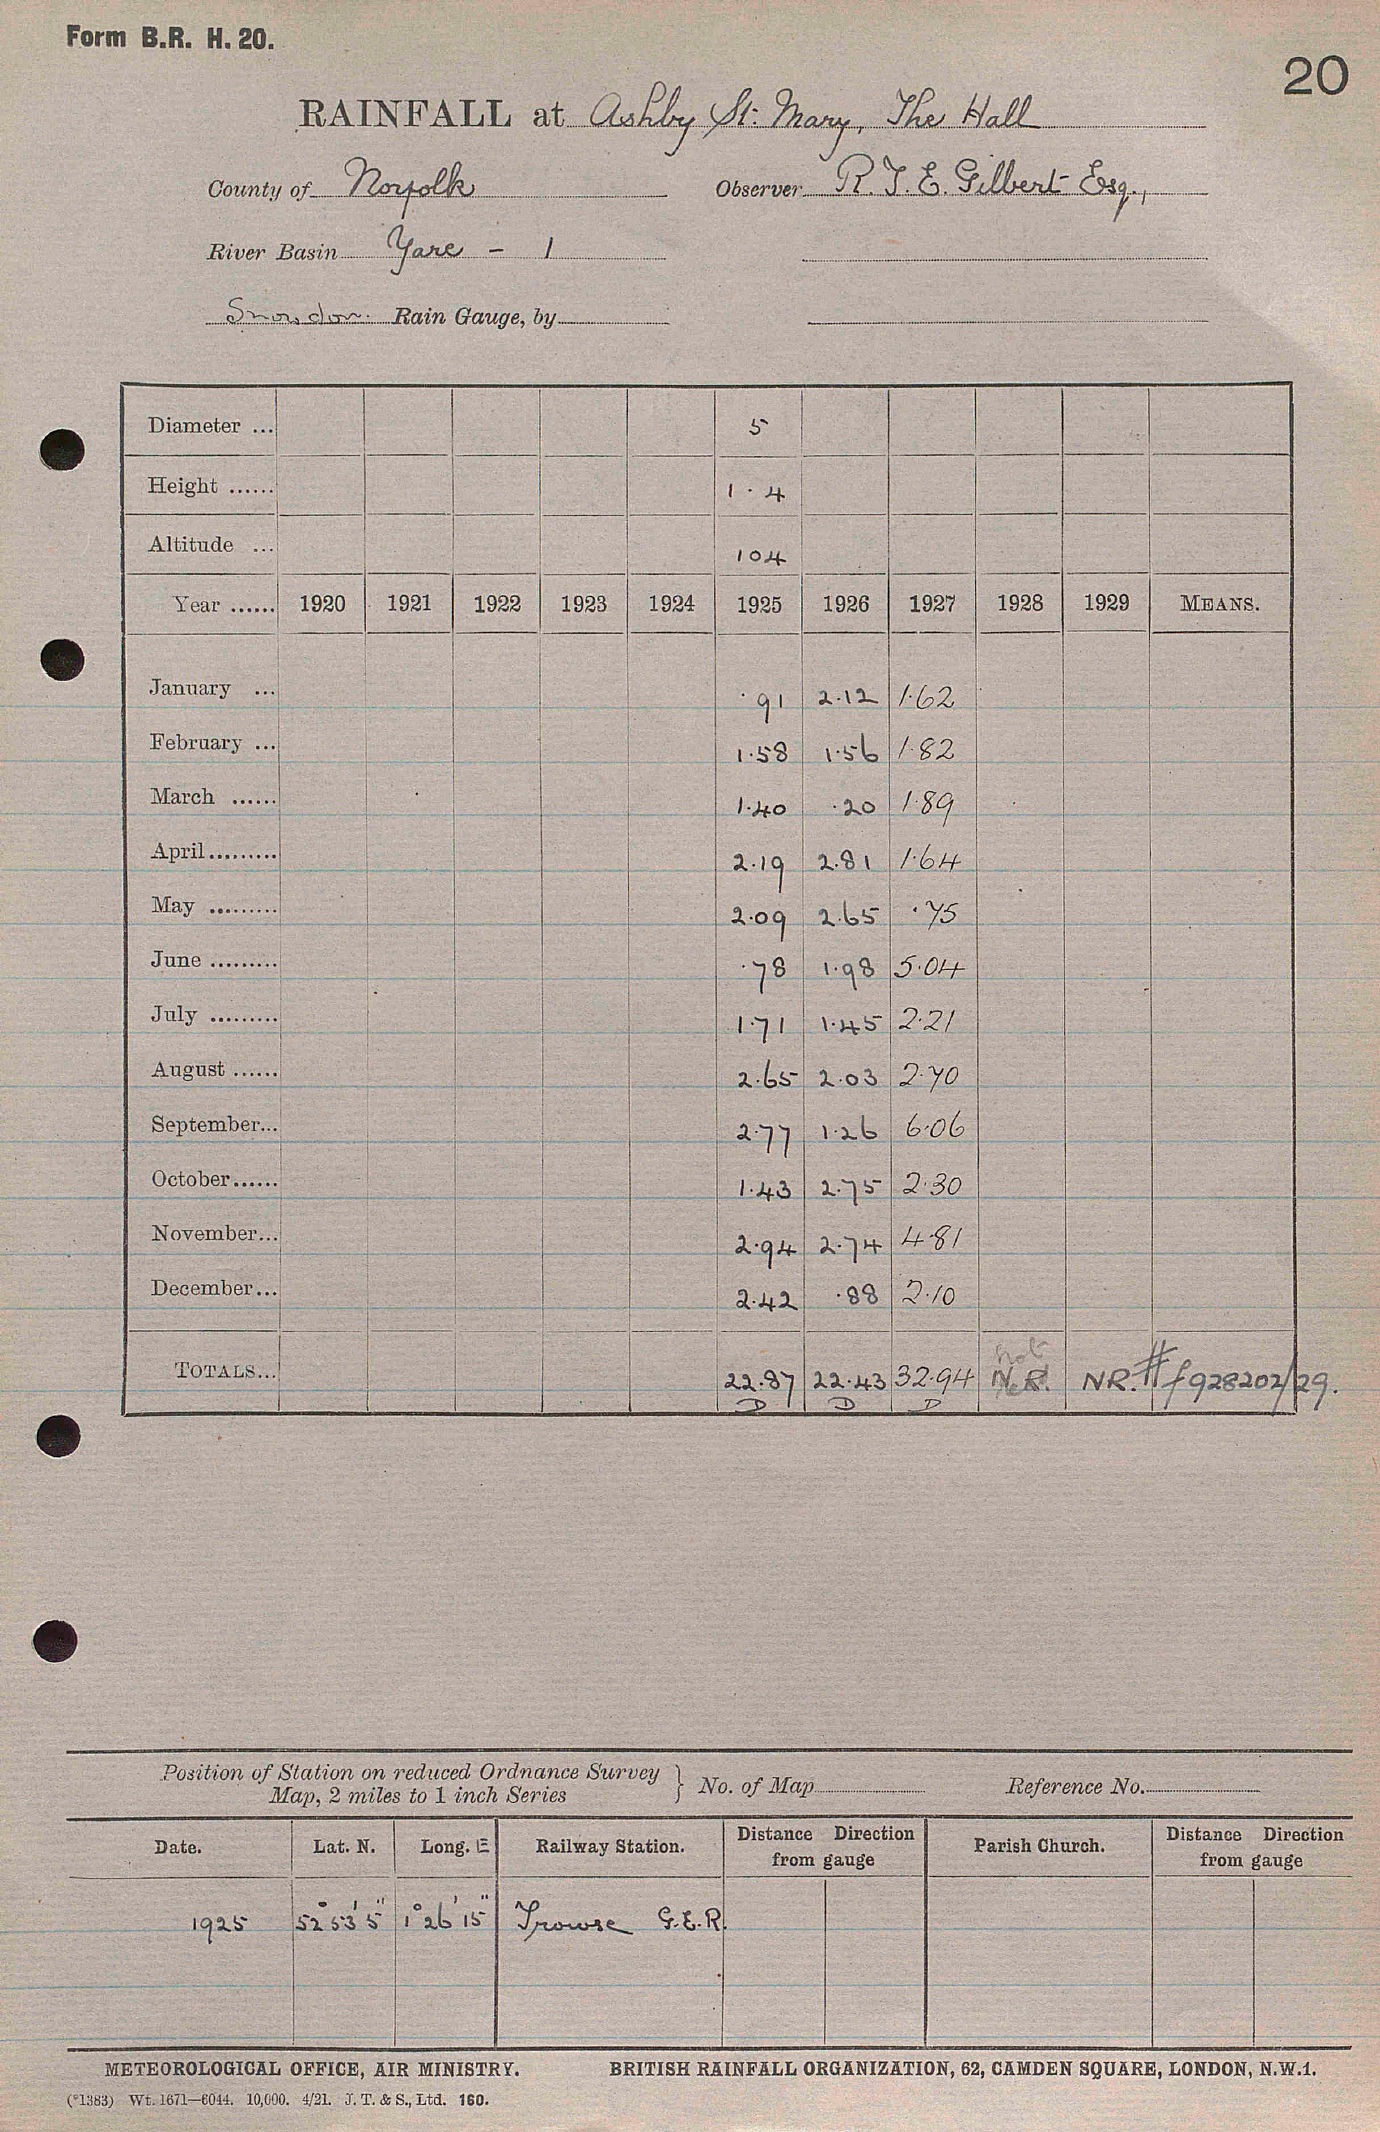 Form B.R. H. 20.
20
RAINFALL at Ashby St. Mary, The Hall
County of Norfolk Observer R. T. E. Gilbert Esq.,
River Basin Yare - 1
Snowdon. Rain Gauge, by
Diameter ... 5
Height ...... 1.4
Altitude ... 104
Year ...... 1920 1921 1922 1923 1924 1925 1926 1927 1928 1929 MEANS.
January ... .91 2.12 1.62
February ... 1.58 1.56 1.82
March ...... 1.40 .20 1.89
April......... 2.19 2.81 1.64
May ......... 2.09 2.65 .75
June ......... .78 1.98 5.04
July ......... 1.71 1.45 2.21
August ...... 2.65 2.03 2.70
September... 2.77 1.26 6.06
October...... 1.43 2.75 2.30
November... 2.94 2.74 4.81
December... 2.42 .88 2.10
TOTALS... 22.87 22.43 32.94 N.R. NR. # f928202/29.
D D D
Position of Station on reduced Ordnance Survey
Map, 2 miles to 1 inch Series } No. of Map Reference No.
Date. Lat. N. Long. E Railway Station. Distance Direction from gauge Parish Church. Distance Direction from gauge
1925 52° 53' 5" 1° 26' 15" Trowse G.E.R.
METEOROLOGICAL OFFICE, AIR MINISTRY. BRITISH RAINFALL ORGANIZATION, 62, CAMDEN SQUARE, LONDON, N.W.1.
(*1383) Wt. 1671—6044. 10,000. 4/21. J. T. & S., Ltd. 160.